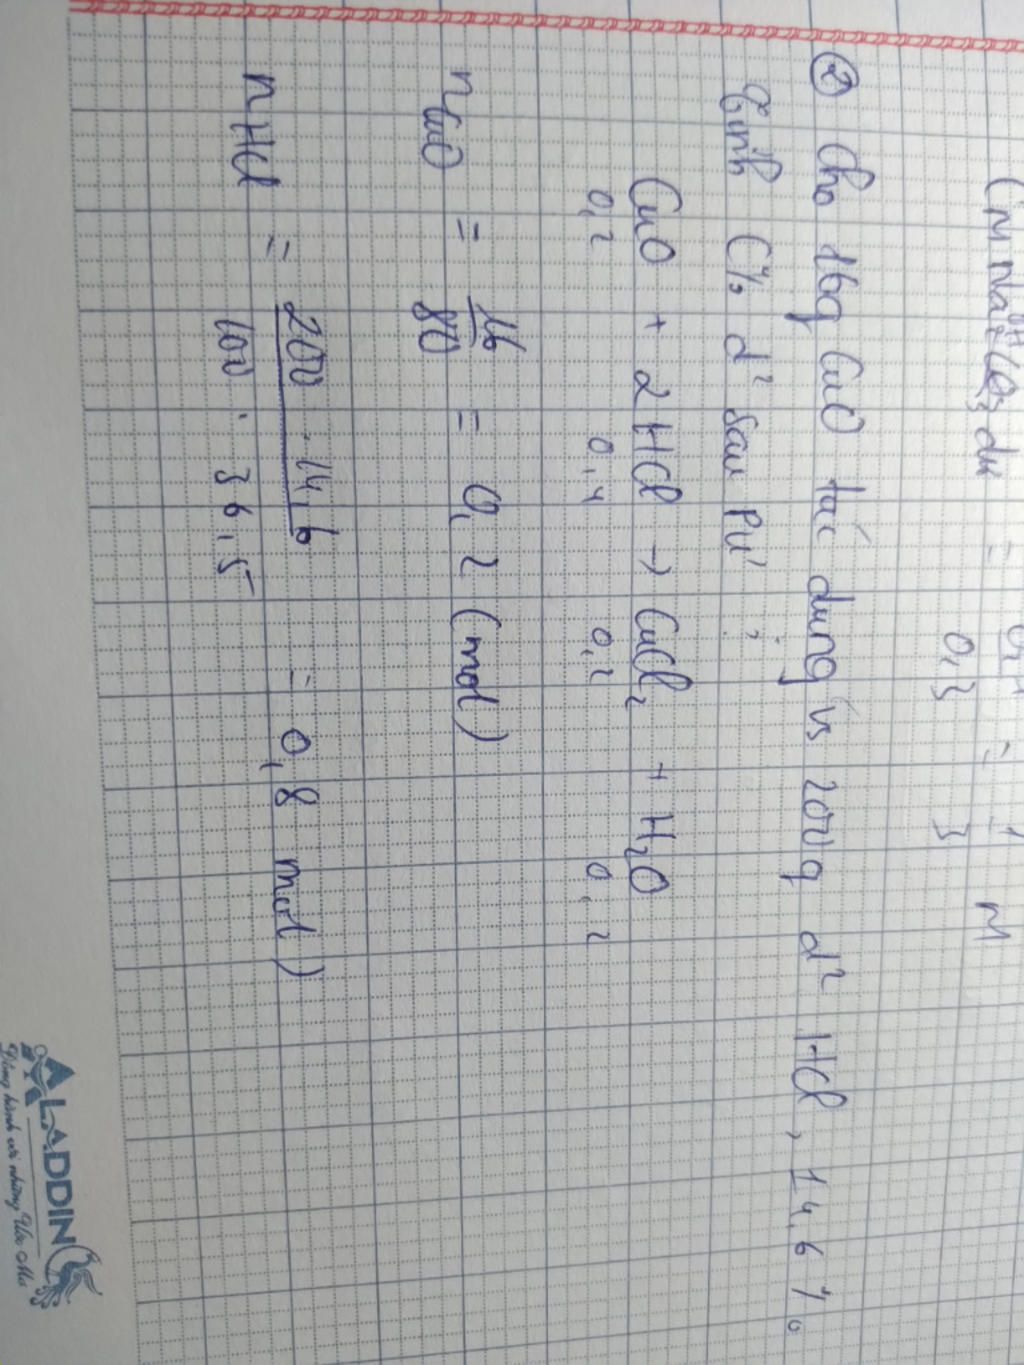 CM Na2CO3 dư = 0,3 = 1 M
0,3 3
② Cho 16g CuO tác dụng vs 200g d² HCl, 14,6%
Tính C% d² sau pứ :
CuO + 2HCl → CuCl2 + H2O
0,2 0,4 0,2 0,2
nCuO = 16/80 = 0,2 (mol)
nHCl = 200 . 14,6 / 100 . 36,5 = 0,8 mol)
ALADDIN
Đồng hành với những Ước Mơ